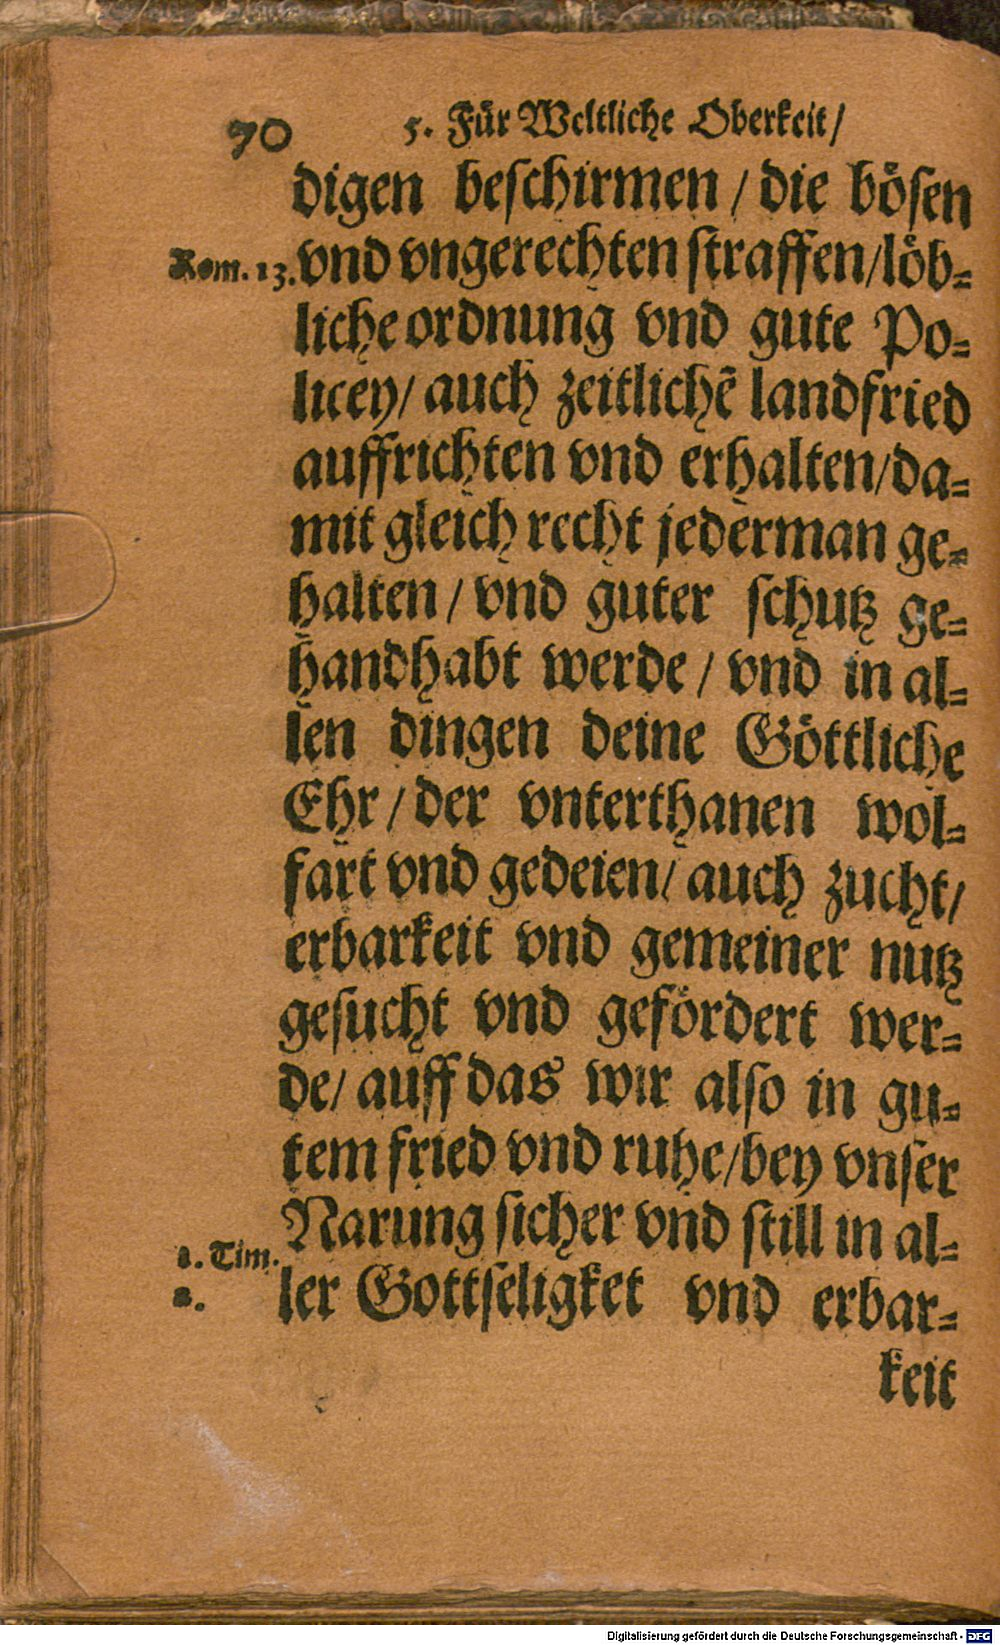 70 5. Für Weltliche Oberkeit/
digen beschirmen / die bösen
Rom. 13. vnd vngerechten straffen/löb-
liche ordnung vnd gute Po-
licey/ auch zeitlichẽ landfried
auffrichten vnd erhalten/da-
mit gleich recht jederman ge-
halten / vnd guter schutz ge-
handhabt werde / vnd in al-
len dingen deine Göttliche
Ehr / der vnterthanen wol-
fart vnd gedeien/ auch zucht/
erbarkeit vnd gemeiner nutz
gesucht vnd gefördert wer-
de/ auff das wir also in gu-
tem fried vnd ruhe/bey vnser
Narung sicher vnd still in al-
1. Tim.
2.
ler Gottseligket vnd erbar-
keit
Digitalisierung gefördert durch die Deutsche Forschungsgemeinschaft - DFG